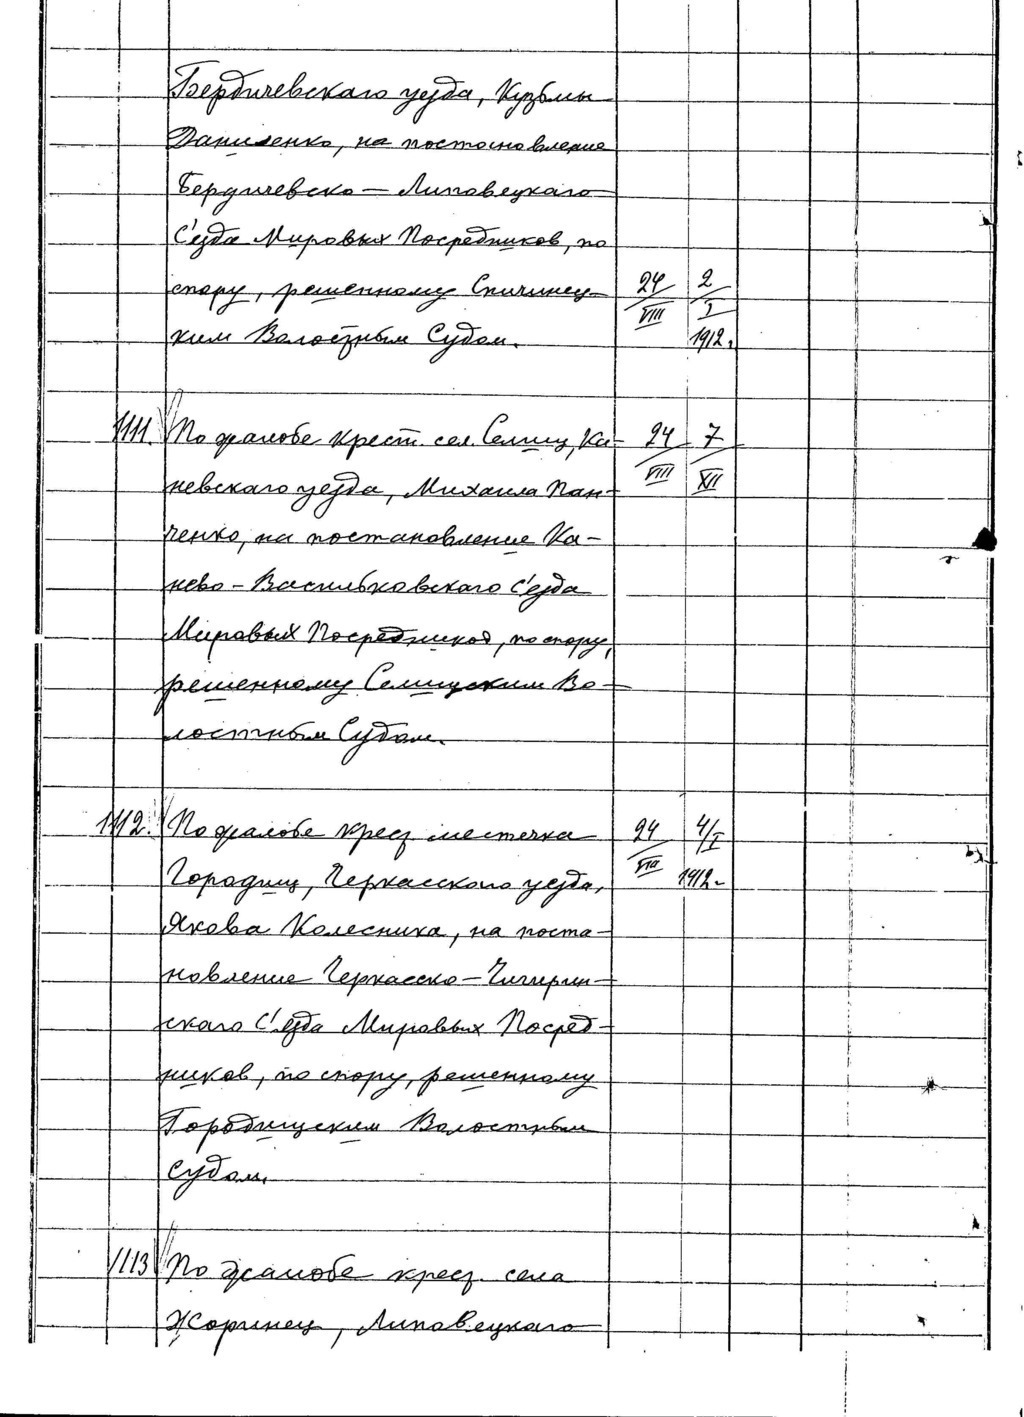 Бердичевскаго уезда, Кузьмы
Даниленко, на постановление
Бердичевско – Липовецкаго
С'езда Мировых Посредников, по
спору, решенному Спичинец- 24/VIII 2/I
ким Волостным Судом. 1912.
1111. По жалобе крест. сел. Селищ, Ка- 24/VIII 7/XII
невскаго уезда, Михаила Пан-
ченко, на постановление Ка-
нево-Васильковскаго С'езда
Мировых Посредников, по спору,
решенному Селищским Во-
лостным Судом.
1112. По жалобе крест. местечка 24/VIII 4/I
Городищ, Черкасскаго уезда, 1912.
Якова Колесника, на поста-
новление Черкасско-Чигирин-
скаго С'езда Мировых Посред-
ников, по спору, решенному
Городищским Волостным
Судом.
1113 По жалобе крест. села
Жоринец, Липовецкаго